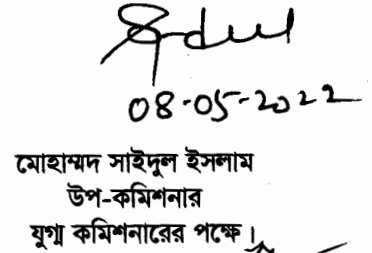 08-05-2022
মোহাম্মদ সাইদুল ইসলাম
উপ-কমিশনার
যুগ্ম কমিশনারের পক্ষে।